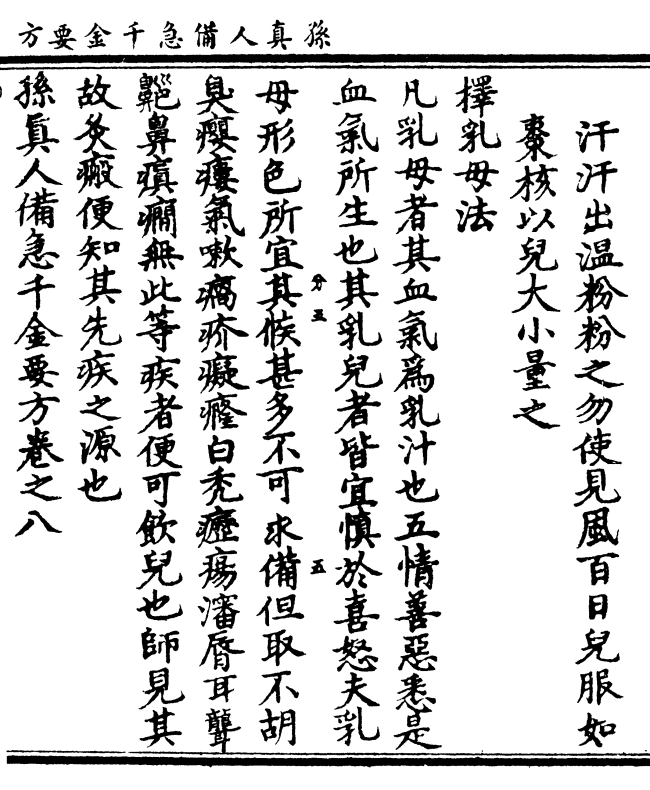 孫真人備急千金要方
汗汗出温粉粉之勿使見風百日兒服如
棗核以兒大小量之
擇乳母法
凡乳母者其血氣爲乳汁也五情善惡悉是
血氣所生也其乳兒者皆宜慎於喜怒夫乳
母形色所宜其候甚多不可求備但取不胡
臭癭瘻氣嗽瘑疥癡癃白禿癧瘍瀋脣耳聾
齆鼻瘨癇無此等疾者便可飲兒也師見其
故灸瘢便知其先疾之源也
孫真人備急千金要方卷之八